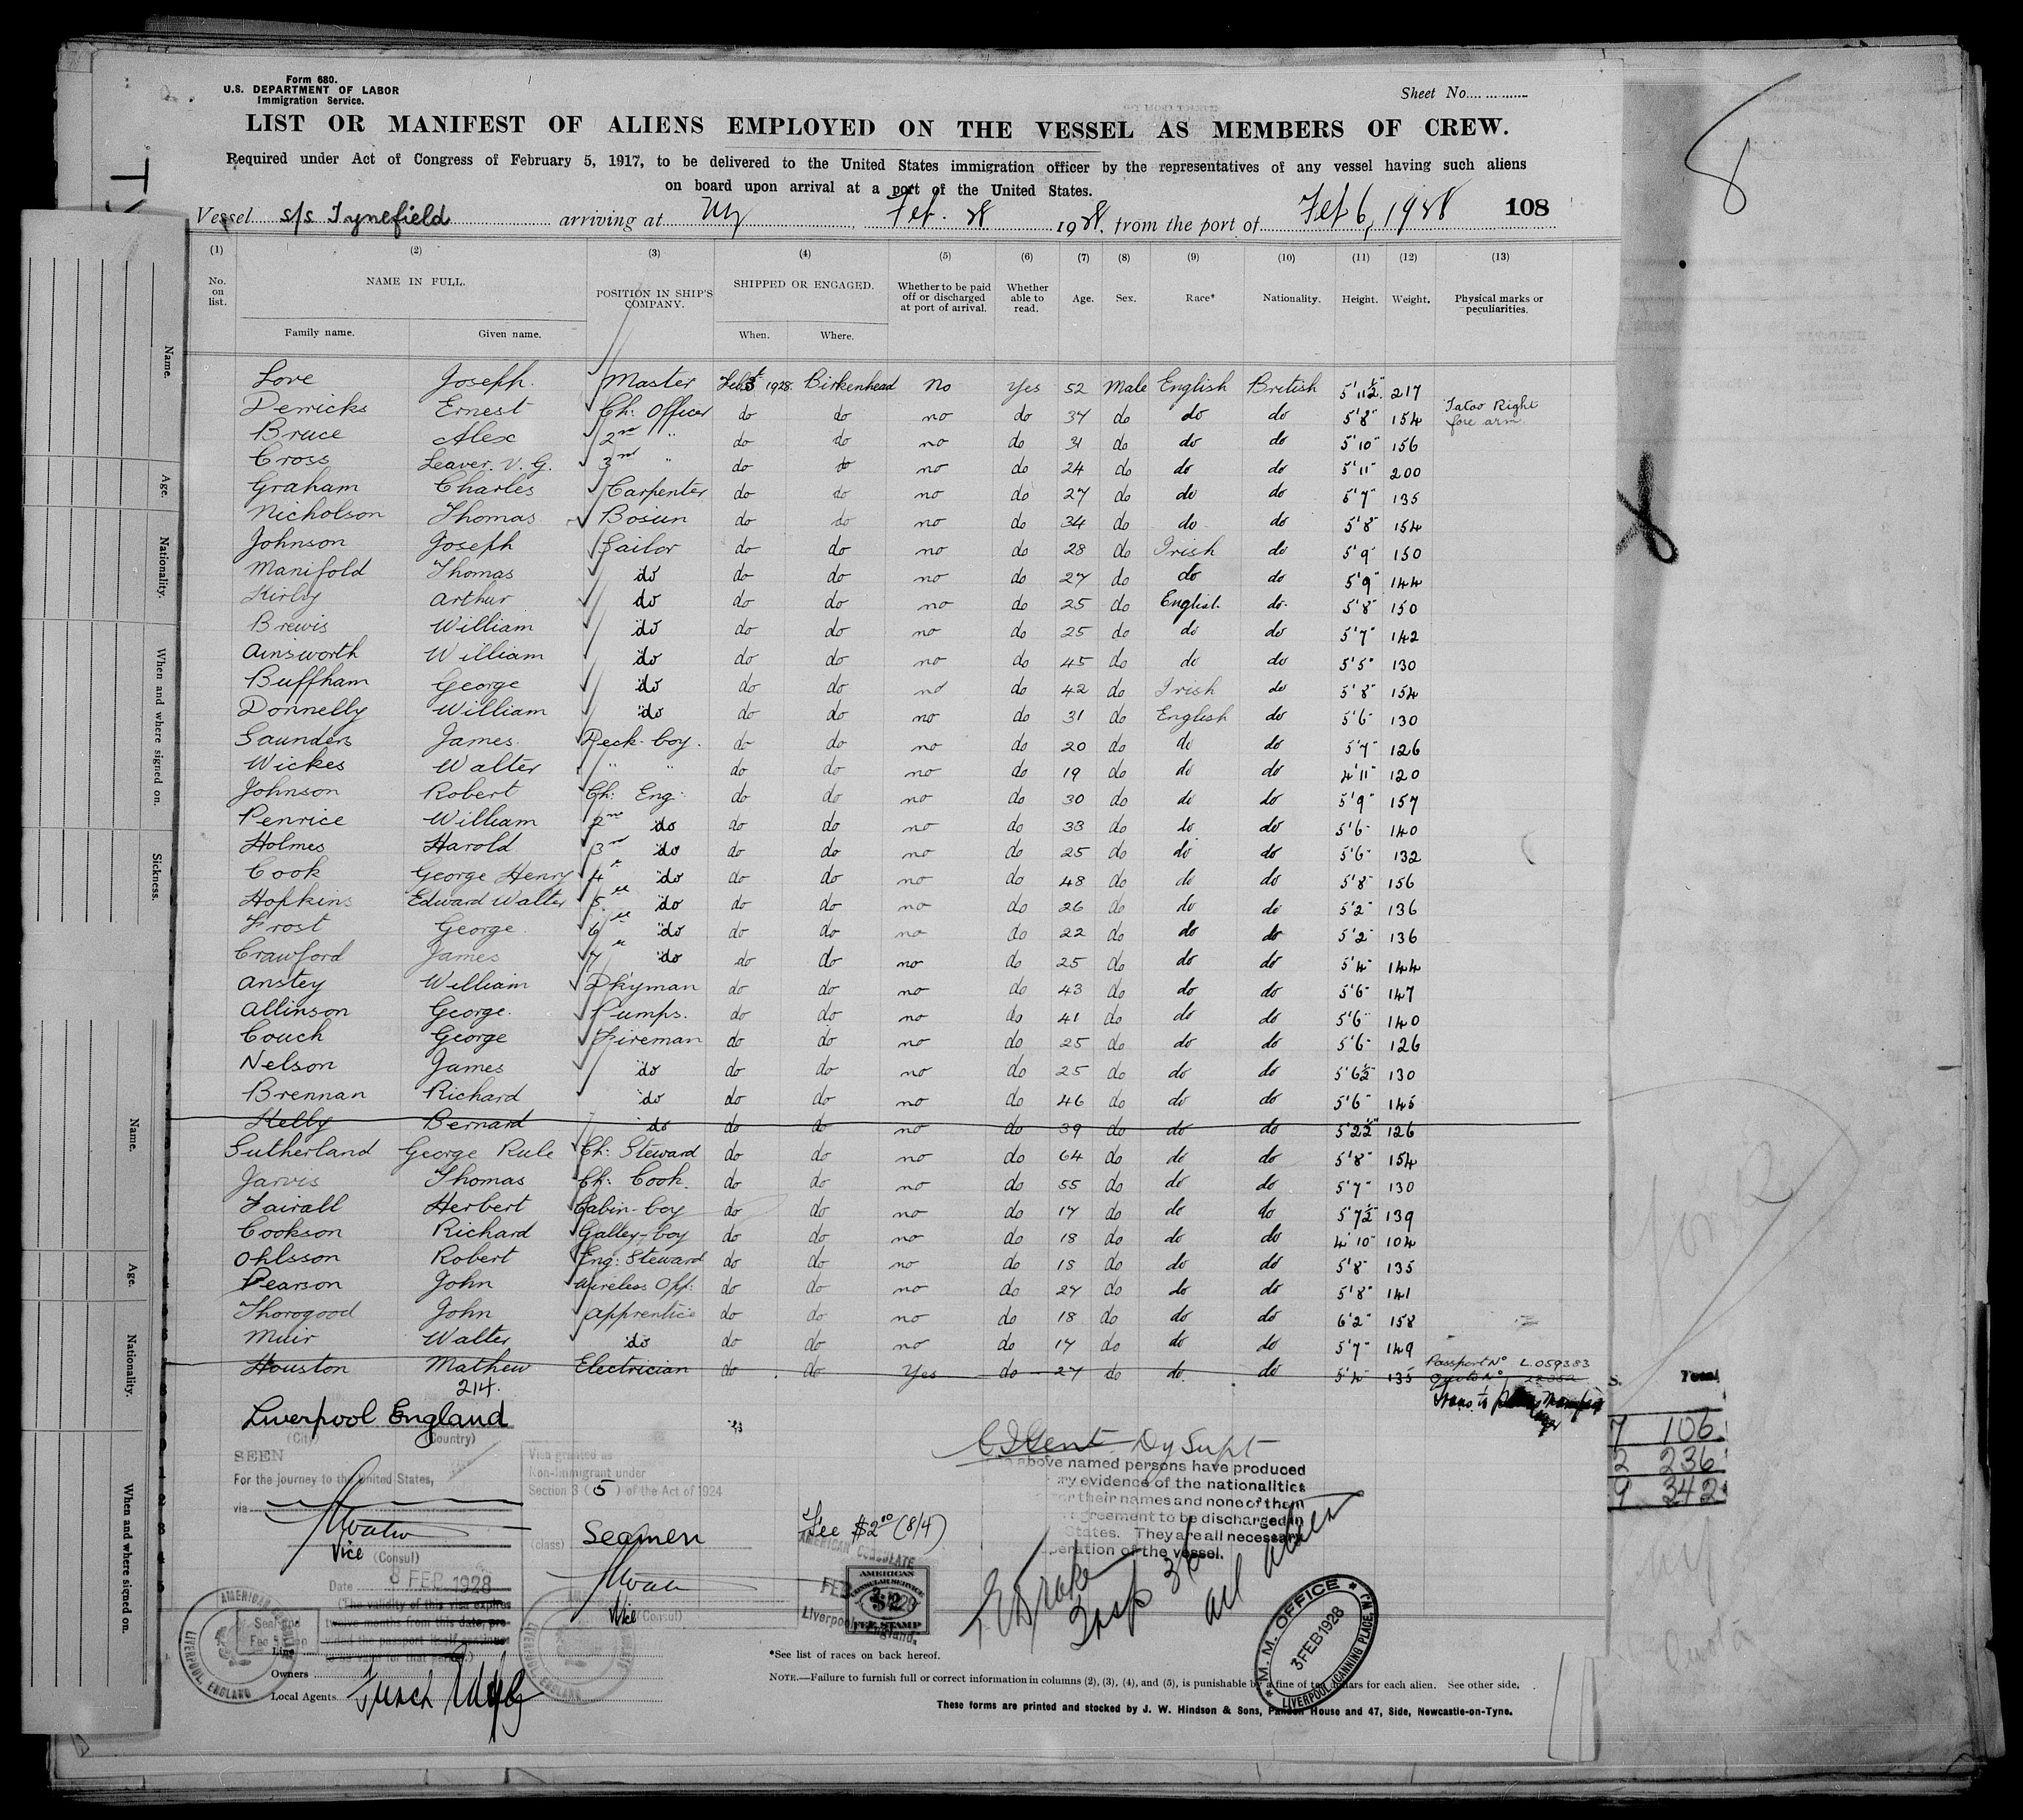 Form 680.
U.S. DEPARTMENT OF LABOR
Immigration Service.
Sheet No.
LIST OR MANIFEST OF ALIENS EMPLOYED ON THE VESSEL AS MEMBERS OF CREW.
Required under Act of Congress of February 5, 1917, to be delivered to the United States immigration officer by the representatives of any vessel having such aliens
on board upon arrival at a port of the United States.
Vessel s/s Tynefield arriving at Ny Feb. 28 1928, from the port of Feb 6, 1928 108
(1) (2) (3) (4) (5) (6) (7) (8) (9) (10) (11) (12) (13)
No. on list. NAME IN FULL. POSITION IN SHIP'S COMPANY. SHIPPED OR ENGAGED. Whether to be paid off or discharged at port of arrival. Whether able to read. Age. Sex. Race* Nationality. Height. Weight. Physical marks or peculiarities.
Family name. Given name. When. Where.
Love Joseph. Master 1928. Birkenhead No Yes 52 Male English British 5'11½" 217
Derricks Ernest Ch: Officer do do no do 34 do do do 5'8" 154 Tatoo Right fore arm.
Bruce Alex 2nd " do do no do 31 do do do 5'10" 156
Cross Leaver. V. G. 3rd " do do no do 24 do do do 5'11" 200
Graham Charles Carpenter do do no do 27 do do do 5'7" 135
Nicholson Thomas Bosun do do no do 34 do do do 5'8" 154
Johnson Joseph Sailor do do no do 28 do Irish do 5'9" 150
Manifold Thomas do do do no do 27 do do do 5'9" 144
Kirby Arthur do do do no do 25 do English. do. 5'8" 150
Brewis William do do do no do 25 do do do 5'7" 142
Ainsworth William do do do no do 45 do do do 5'5" 130
Buffham George do do do no do 42 do Irish do 5'8" 154
Donnelly William do do do no do 31 do English do 5'6" 130
Saunders James. Deck-boy. do do no do 20 do do do 5'7" 126
Wickes Walter " " do do no do 19 do do do 4'11" 120
Johnson Robert Ch: Eng: do do no do 30 do do do 5'9" 157
Penrice William 2nd do do do no do 33 do do do 5'6" 140
Holmes Harold 3rd do do do no do 25 do do do 5'6" 132
Cook George Henry 4th do do do no do 48 do do do 5'8" 156
Hopkins Edward Walter 5th do do do no do 26 do do do 5'2" 136
Frost George 6th do do do no do 22 do do do 5'2" 136
Crawford James 7th do do do no do 25 do do do 5'4" 144
Anstey William Dkyman do do no do 43 do do do 5'6" 147
Allinson George. Pumps. do do no do 41 do do do 5'6" 140
Couch George Fireman do do no do 25 do do do 5'6" 126
Nelson James do do do no do 25 do do do 5'6½" 130
Brennan Richard do do do no do 46 do do do 5'6" 145
Kelly Bernard do do do no do 39 do do do 5'2½" 126
Sutherland George Rule Ch: Steward do do no do 64 do do do 5'8" 154
Jarvis Thomas Ch: Cook. do do no do 55 do do do 5'7" 130
Fairall Herbert Cabin-boy do do no do 17 do do do 5'7½" 139
Cookson Richard Galley-boy do do no do 18 do do do 4'10" 104
Ohlsson Robert Eng: Steward do do no do 18 do do do 5'8" 135
Pearson John Wireless Opp: do do no do 27 do do do 5'8" 141
Thorogood John Apprentice do do no do 18 do do do 6'2" 158
Muir Walter do do do no do 17 do do do 5'7" 149
Houston Mathew Electrician do do Yes do 27 do do do 5'4" 135 Passport No L.059383
214.
Liverpool England
(City) (Country)
SEEN
For the journey to the United States,
via
Vice (Consul)
Date 3 FEB 1928
(The validity of this visa expires
twelve months from this date, pro-
vided the passport itself continues
to be valid for that period.)
Visa granted as
Non-Immigrant under
Section 3 (5) of the Act of 1924
(class) Seamen
Vice (Consul)
Fee $2.00 (8/4)
AMERICAN CONSULATE
Liverpool, England.
AMERICAN
CONSULAR SERVICE
$2
FEE STAMP
Dy Supt
above named persons have produced
evidence of the nationalities
their names and none of them
agreement to be discharged in
States. They are all necessary
operation of the vessel.
Insp 36 all aliens
M.M. OFFICE
3 FEB 1928
LIVERPOOL (CANNING PLACE)
AMERICAN
LIVERPOOL, ENGLAND
Line
Owners
Local Agents
*See list of races on back hereof.
NOTE.—Failure to furnish full or correct information in columns (2), (3), (4), and (5), is punishable by a fine of ten dollars for each alien. See other side.
These forms are printed and stocked by J. W. Hindson & Sons, Pandon House and 47, Side, Newcastle-on-Tyne.
Name.
Age.
Nationality.
When and where signed on.
Sickness.
Name.
Age.
Nationality.
When and where signed on.
8
S. Total
7 106
2 236
9 342